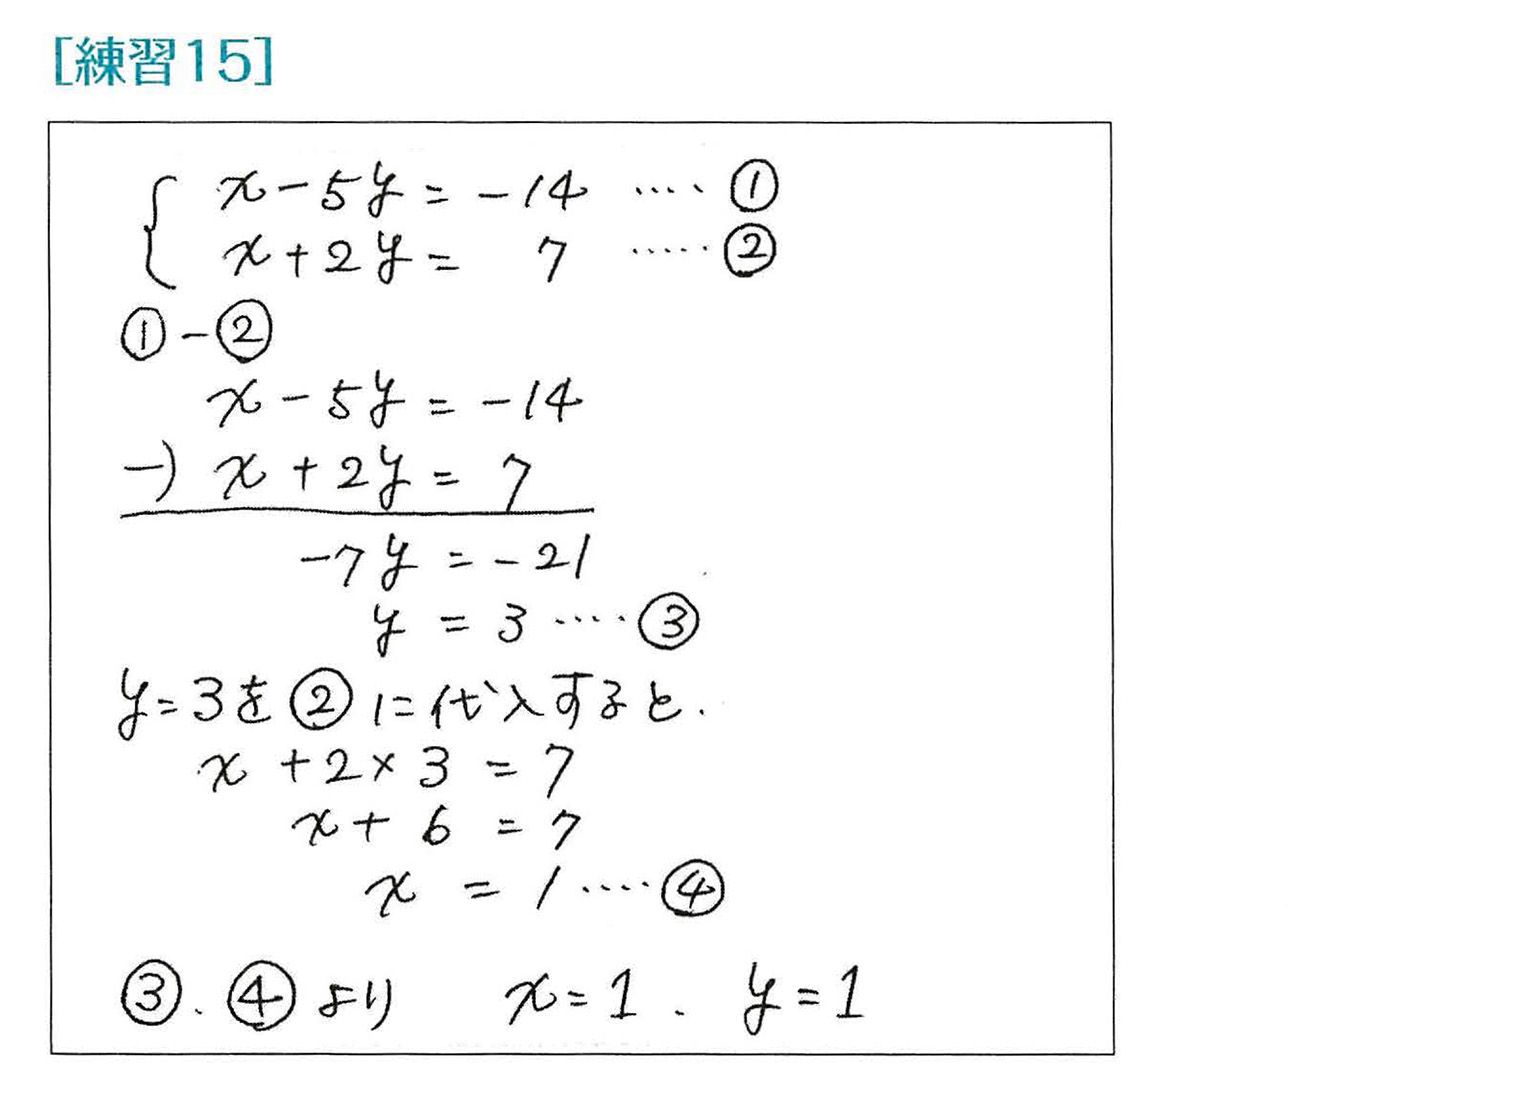 [練習15]
x-5y=-14 ····①
x+2y= 7 ·····②
①-②
x-5y=-14
-) x+2y=7
-7y=-21
y=3 ····③
y=3を②に代入すると.
x+2×3=7
x+6=7
x=1 ····④
③、④より x=1 . y=1